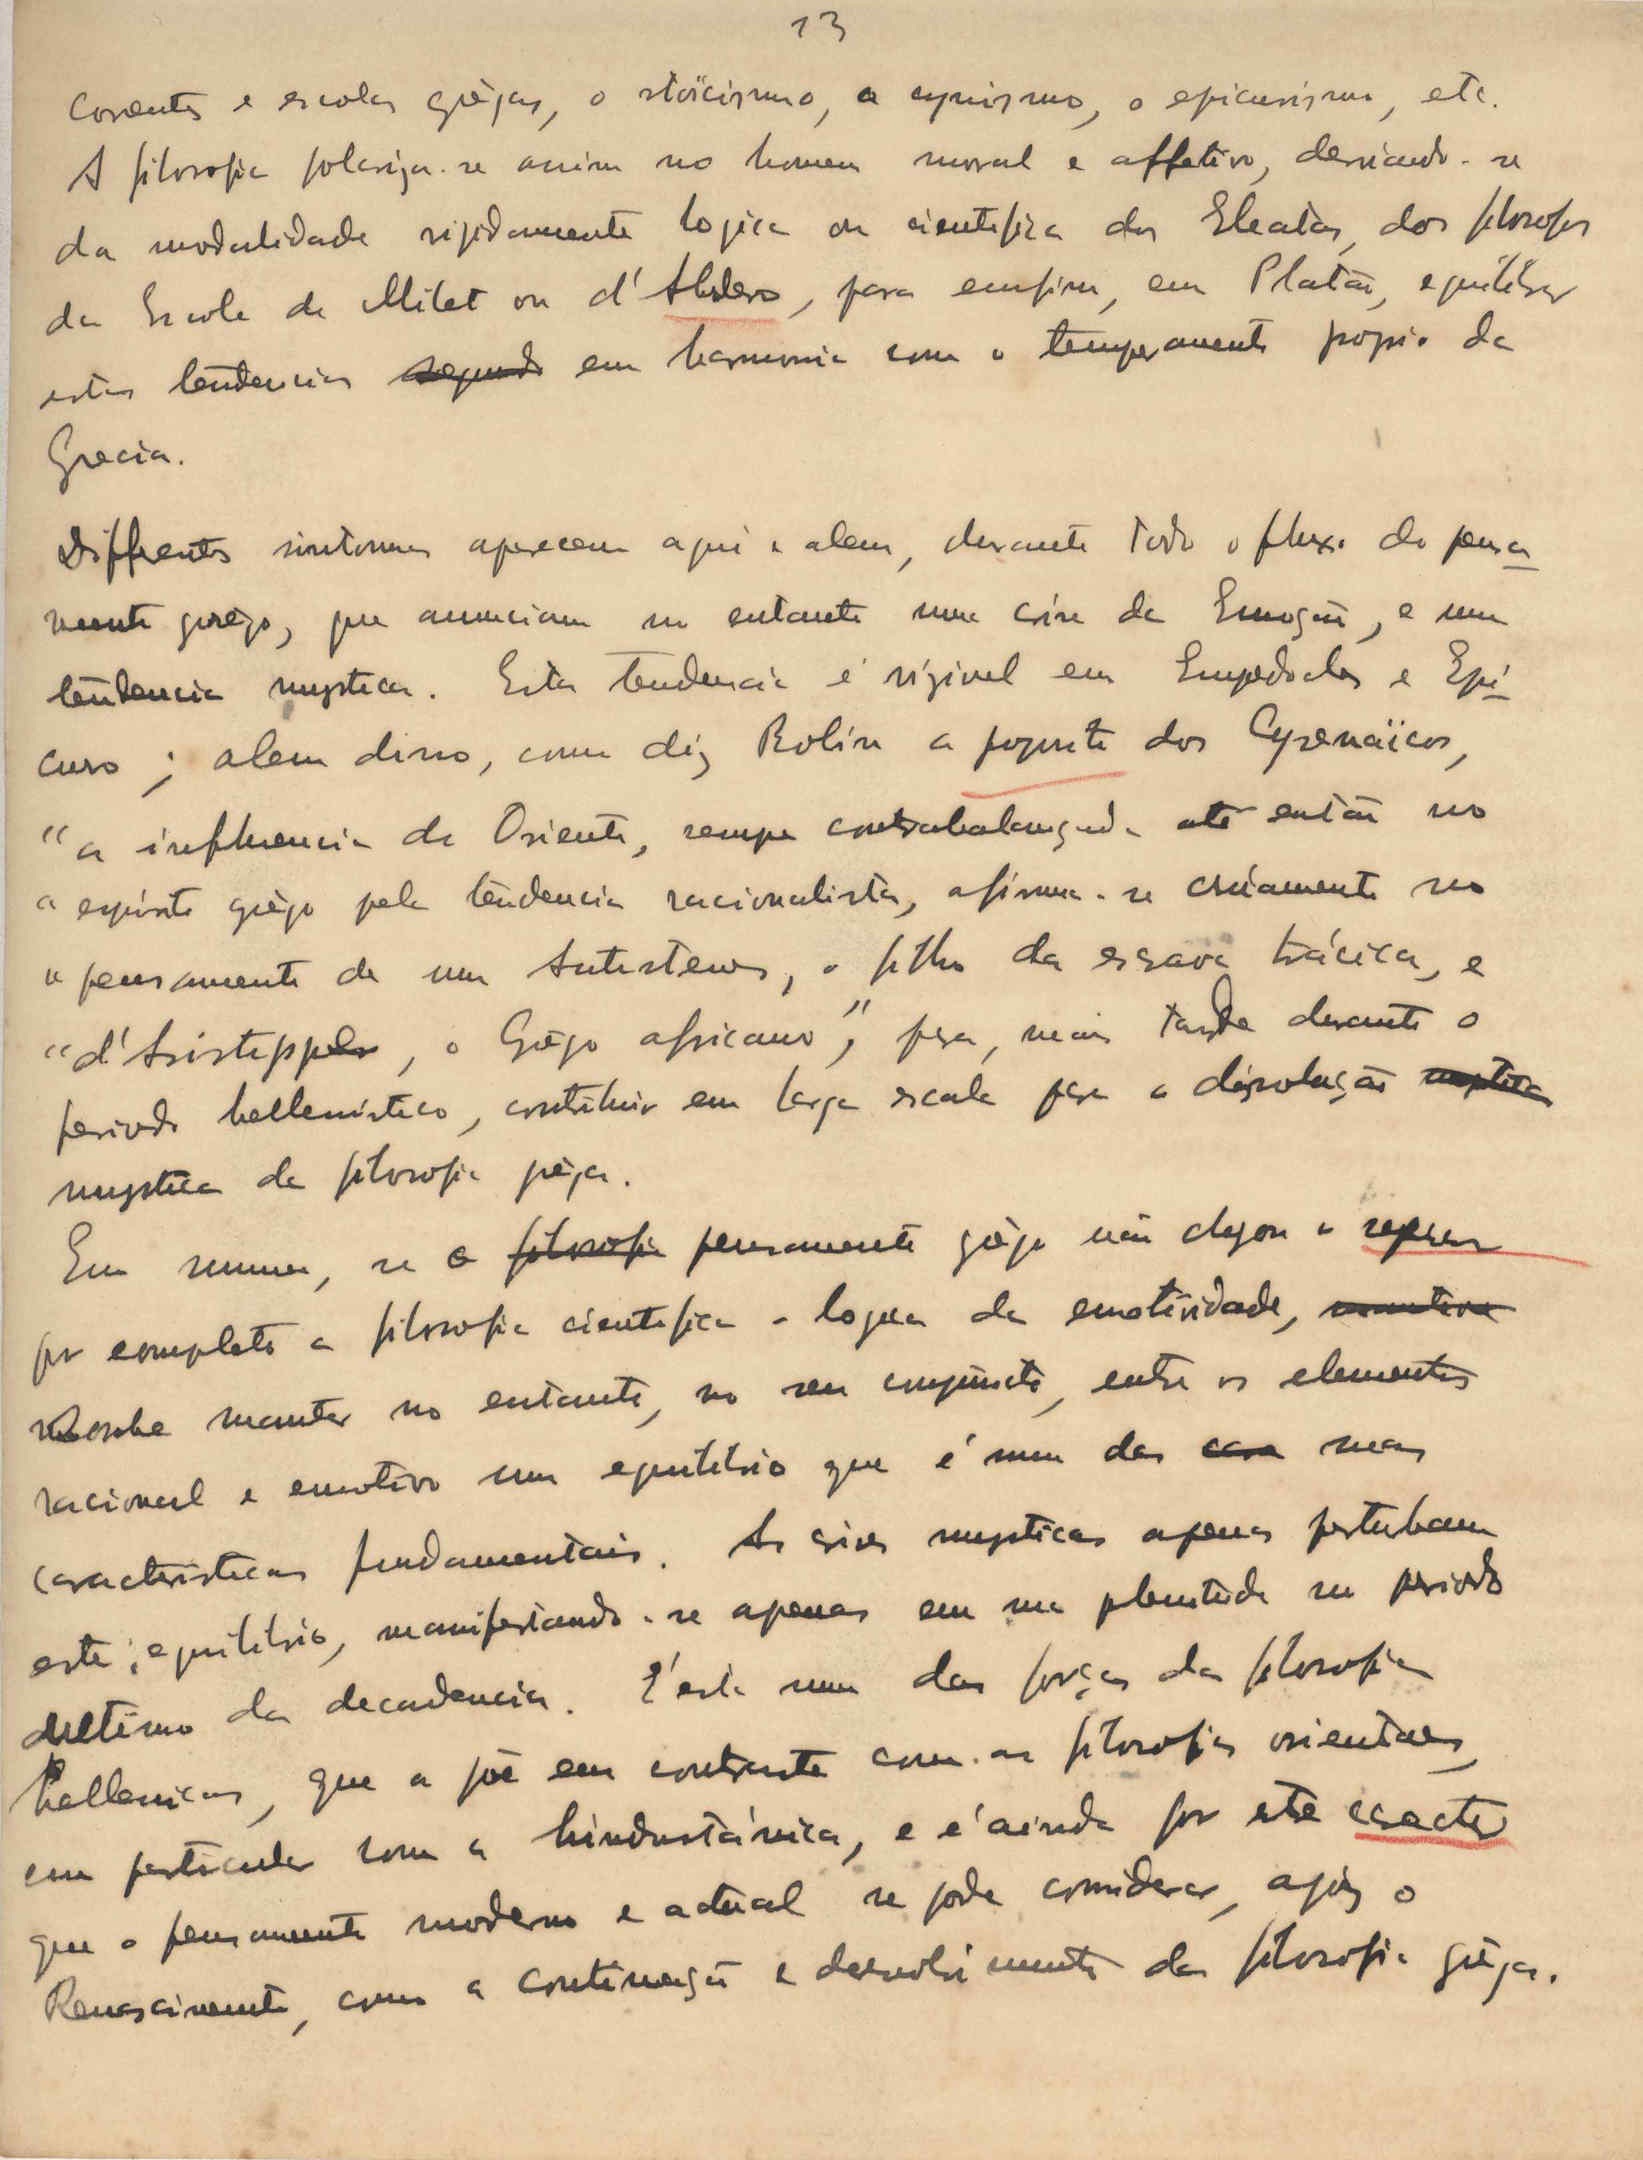 13
correntes e escolas grègas, o stoïcismo, o cynismo, o epicurismo, etc.
A filosofia polariza-se assim no homem moral e affetivo, desviando-se
da modalidade rigidamente logica ou cientifica dos Eleatas, dos filosofos
da Escola de Milet ou d'Abdera, para emfim, em Platão, equilibrar
estas tendencias segundo em harmonia com o temperamento proprio da
Grecia.
Differentes sintomas aparecem aqui e alem, durante todo o fluxo do pensa
mento grègo, que anunciam no entanto uma crise da Emoção, e uma
tendencia mystica. Esta tendencia é vizivel em Empedocles e Epi
curo; alem disso, como diz Robin a proposito dos Cyrenaïcos,
"a influencia do Oriente, sempre contrabalançada até então no
"espirito grègo pela tendencia racionalista, afirma-se no
"pensamento de um Antistenes, o filho da escrava trácica, e
"d'Aristippo, o Grègo africano", para, mais tarde durante o
periodo hellenistico, contribuir em larga escala para a dissolução mystica
mystica da filosofia grèga.
Em summa, se o filosofia pensamento grègo não chegou a separar
por completo a filosofia cientifica e logica da emotividade,
soube manter no entanto, no seu conjuncto, entre os elementos
racional e emotivo um equilibrio que é uma das suas
caracteristicas fundamentais. As crises mysticas apenas perturbam
este equilibrio, manifestando-se apenas em sua plenitude no periodo
ultimo da decadencia. E' esta uma das forças da filosofia
hellenica, que a põe em contraste com as filosofias orientaes,
em particular com a hindustánica, e é ainda por este caracter
que o pensamento moderno e actual se pode considerar, após o
Renascimento, como a continuação e desenvolvimento da filosofia grèga.